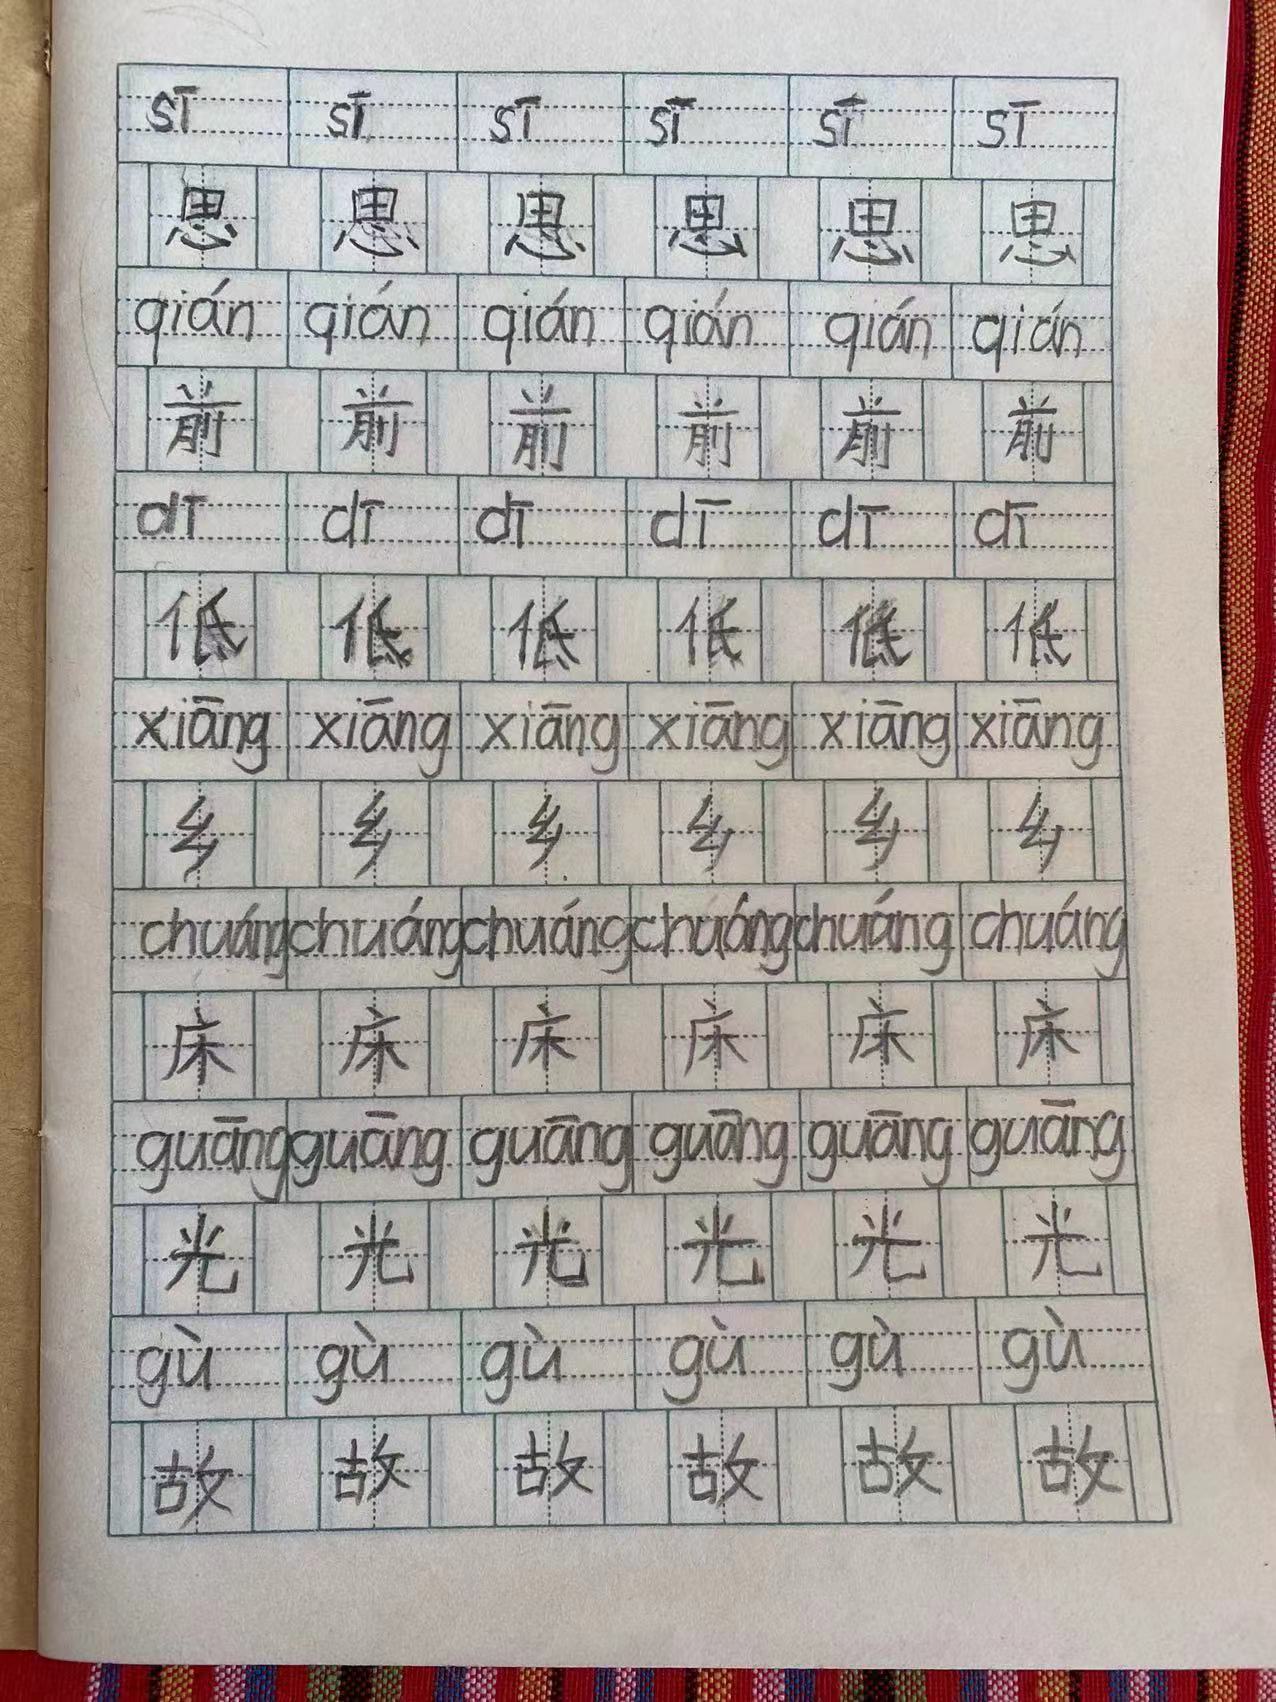 sī sī sī sī sī sī
思 思 思 思 思 思
qián qián qián qián qián qián
前 前 前 前 前 前
dī dī dī dī dī dī
低 低 低 低 低 低
xiāng xiāng xiāng xiāng xiāng xiāng
乡 乡 乡 乡 乡 乡
chuáng chuáng chuáng chuáng chuáng chuáng
床 床 床 床 床 床
guāng guāng guāng guāng guāng guāng
光 光 光 光 光 光
gù gù gù gù gù gù
故 故 故 故 故 故